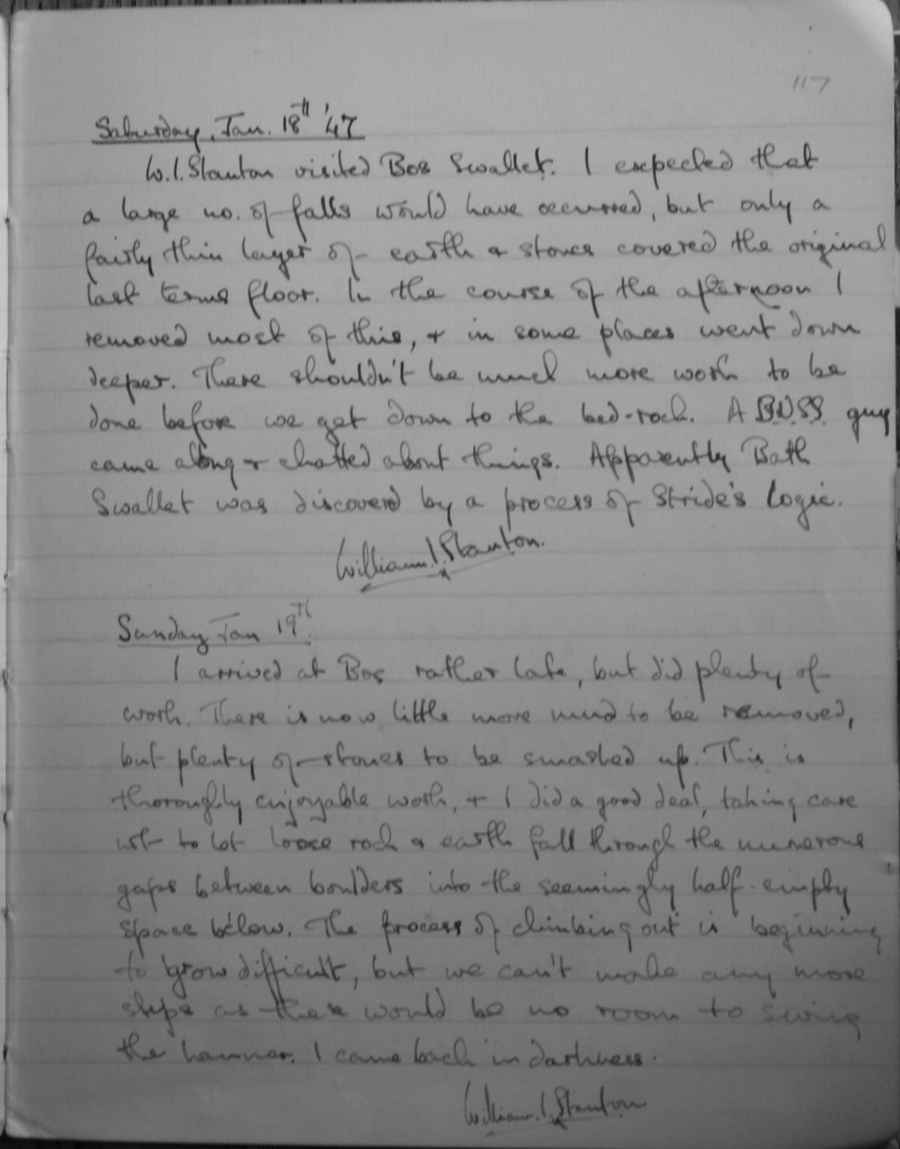 117
Saturday, Jan. 18th '47
W.I. Stanton visited Bos Swallet. I expected that
a large no. of falls would have occurred, but only a
fairly thin layer of earth & stones covered the original
last terms floor. In the course of the afternoon I
removed most of this, & in some places went down
deeper. There shouldn't be much more work to be
done before we get down to the bed-rock. A B.U.S.S. guy
came along & chatted about things. Apparently Bath
Swallet was discoverd by a process of Stride's Logic.
William I. Stanton.
Sunday Jan 19th.
I arrived at Bos rather late, but did plenty of
work. There is now little more mud to be removed,
but plenty of stones to be smashed up. This is
thoroughly enjoyable work, & I did a good deal, taking care
not to let loose rock & earth fall through the numerous
gaps between boulders into the seemingly half-empty
space below. The process of climbing out is beginning
to grow difficult, but we can't make any more
steps as there would be no room to swing
the hammer. I came back in darkness.
William I. Stanton